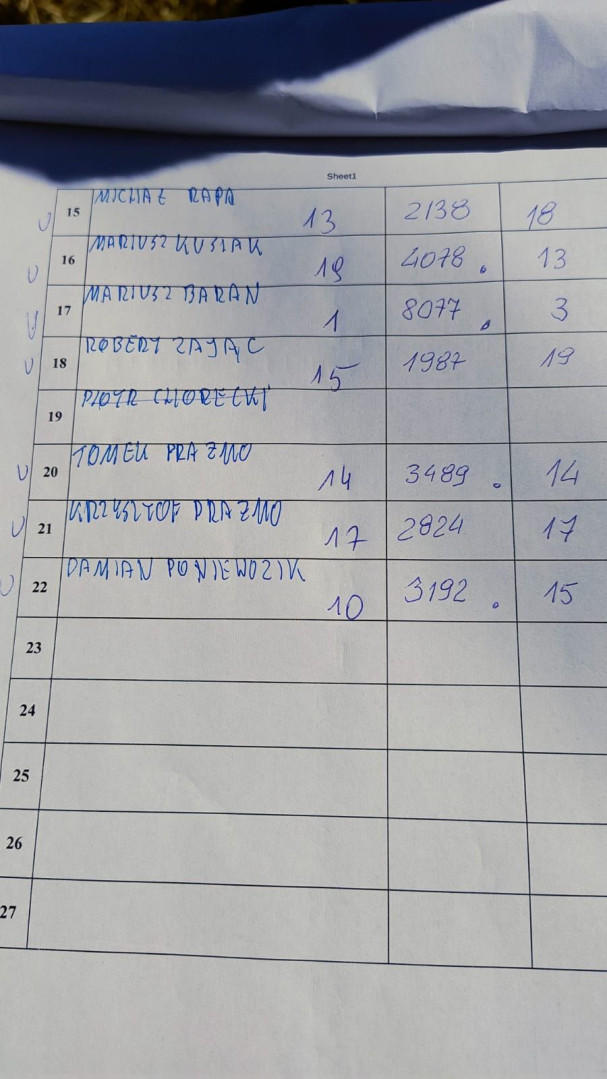 Sheet1
15 MICHAŁ RAPA 13 2138 18
16 MARIUSZ KUSIAK 19 4078. 13
17 MARIUSZ BARAN 1 8077. 3
18 ROBERT ZAJĄC 15 1987 19
19 PIOTR CHORECKI
20 TOMEK PRAŻMO 14 3489. 14
21 KRZYSZTOF PRAŻMO 17 2824 17
22 DAMIAN PONIEWOZIK 10 3192. 15
23
24
25
26
27